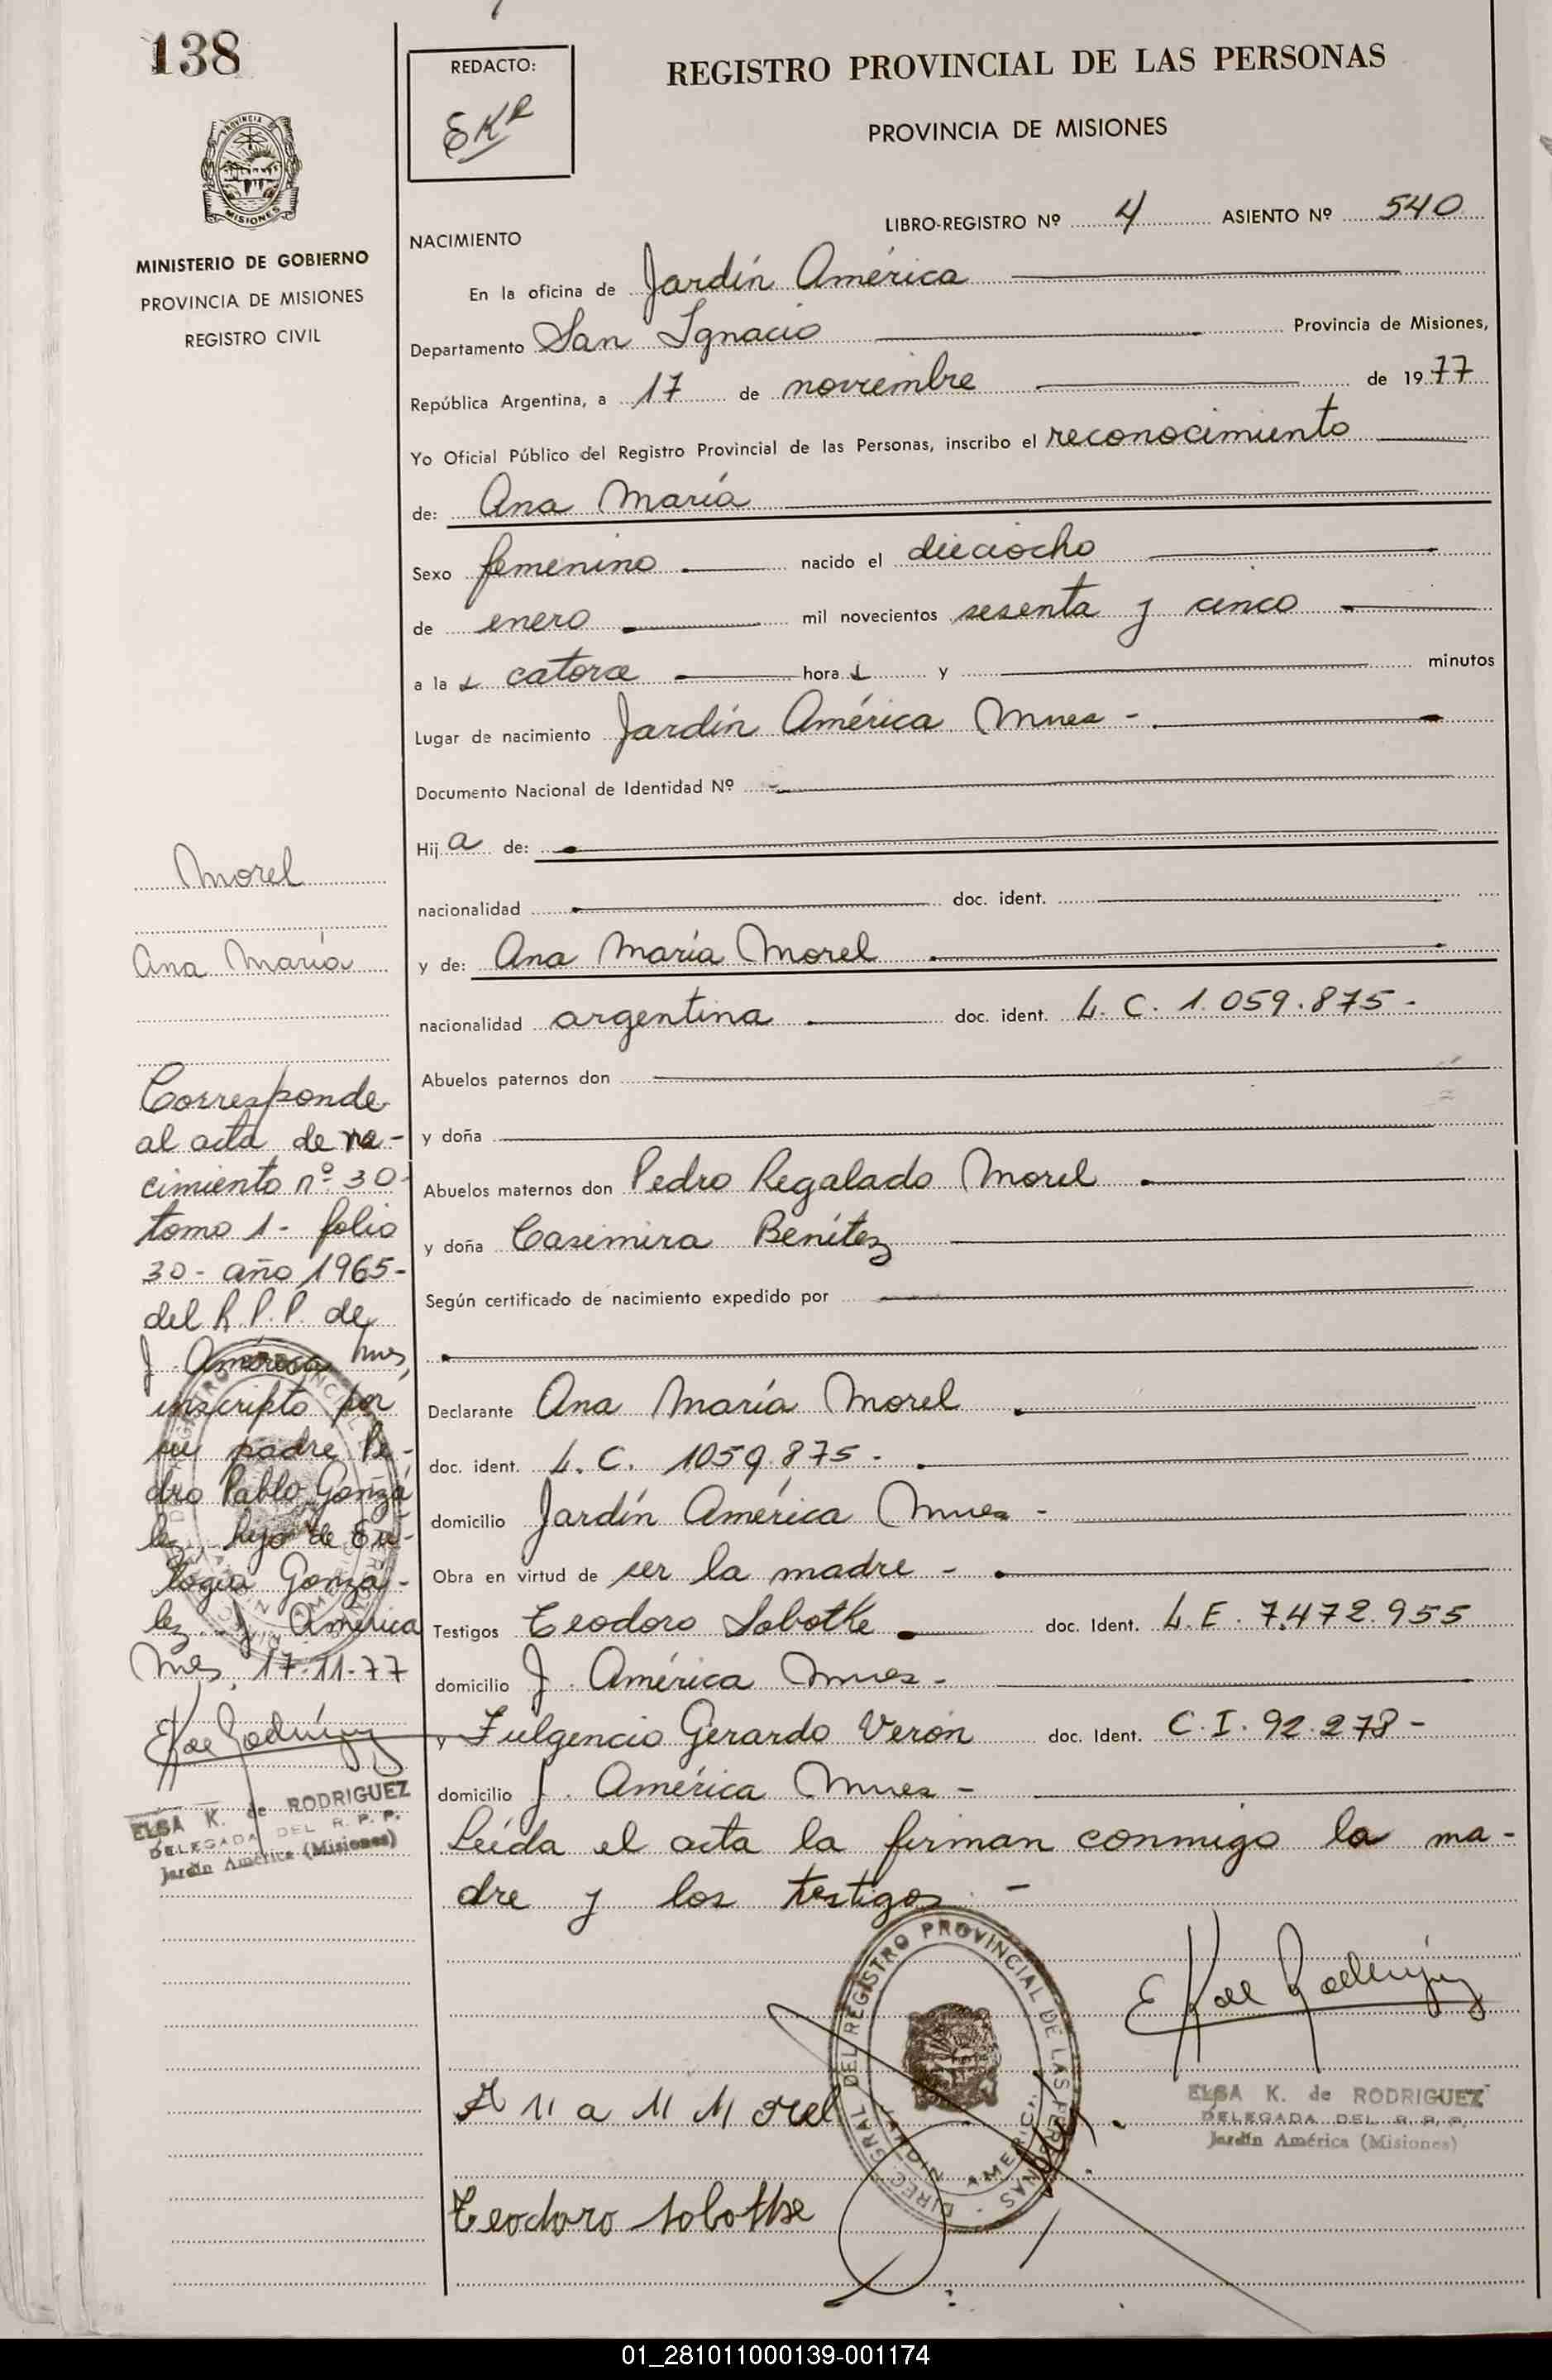 138
REDACTO:
EKR
REGISTRO PROVINCIAL DE LAS PERSONAS
PROVINCIA DE MISIONES
PROVINCIA
MISIONES
MINISTERIO DE GOBIERNO
PROVINCIA DE MISIONES
REGISTRO CIVIL
LIBRO-REGISTRO Nº 4 ASIENTO Nº 540
NACIMIENTO
En la oficina de Jardín América
Departamento San Ignacio Provincia de Misiones,
República Argentina, a 17 de noviembre de 1977
Yo Oficial Público del Registro Provincial de las Personas, inscribo el reconocimiento
de: Ana María
Sexo femenino nacido el dieciocho
de enero mil novecientos sesenta y cinco
a la s catorce hora s y minutos
Lugar de nacimiento Jardín América Mnes -
Documento Nacional de Identidad Nº
Hij a de:
nacionalidad doc. ident.
y de: Ana María Morel
nacionalidad argentina doc. ident. L. C. 1.059.875 -
Abuelos paternos don
y doña
Abuelos maternos don Pedro Regalado Morel
y doña Casimira Benítez
Según certificado de nacimiento expedido por
Declarante Ana María Morel
doc. ident. L. C. 1059.875 -
domicilio Jardín América Mnes -
Obra en virtud de ser la madre -
Testigos Teodoro Sobotke doc. Ident. L.E. 7.472.955
domicilio J. América Mnes -
y Fulgencio Gerardo Verón doc. Ident. C.I. 92.278 -
domicilio J. América Mnes -
Leída el acta la firman conmigo la ma-
dre y los testigos. -
Morel
Ana María
Corresponde
al acta de na-
cimiento nº 30-
tomo 1- folio
30- año 1965-
del R.P.P. de
J. América Mnes,
inscripto por
su padre Pe-
dro Pablo Gonzá
lez, hijo de Eu-
logia Gonzá-
lez. J. América
Mnes, 17-11-77
EK de Rodríguez
ELSA K. de RODRIGUEZ
DELEGADA DEL R. P. P.
Jardín América (Misiones)
EK de Rodríguez
ELSA K. de RODRIGUEZ
DELEGADA DEL R. P. P.
Jardín América (Misiones)
DIREC. GRAL. DEL REGISTRO PROVINCIAL DE LAS PERSONAS
JARDIN AMERICA
Ana M Morel
Teodoro Sobotke
01_281011000139-001174